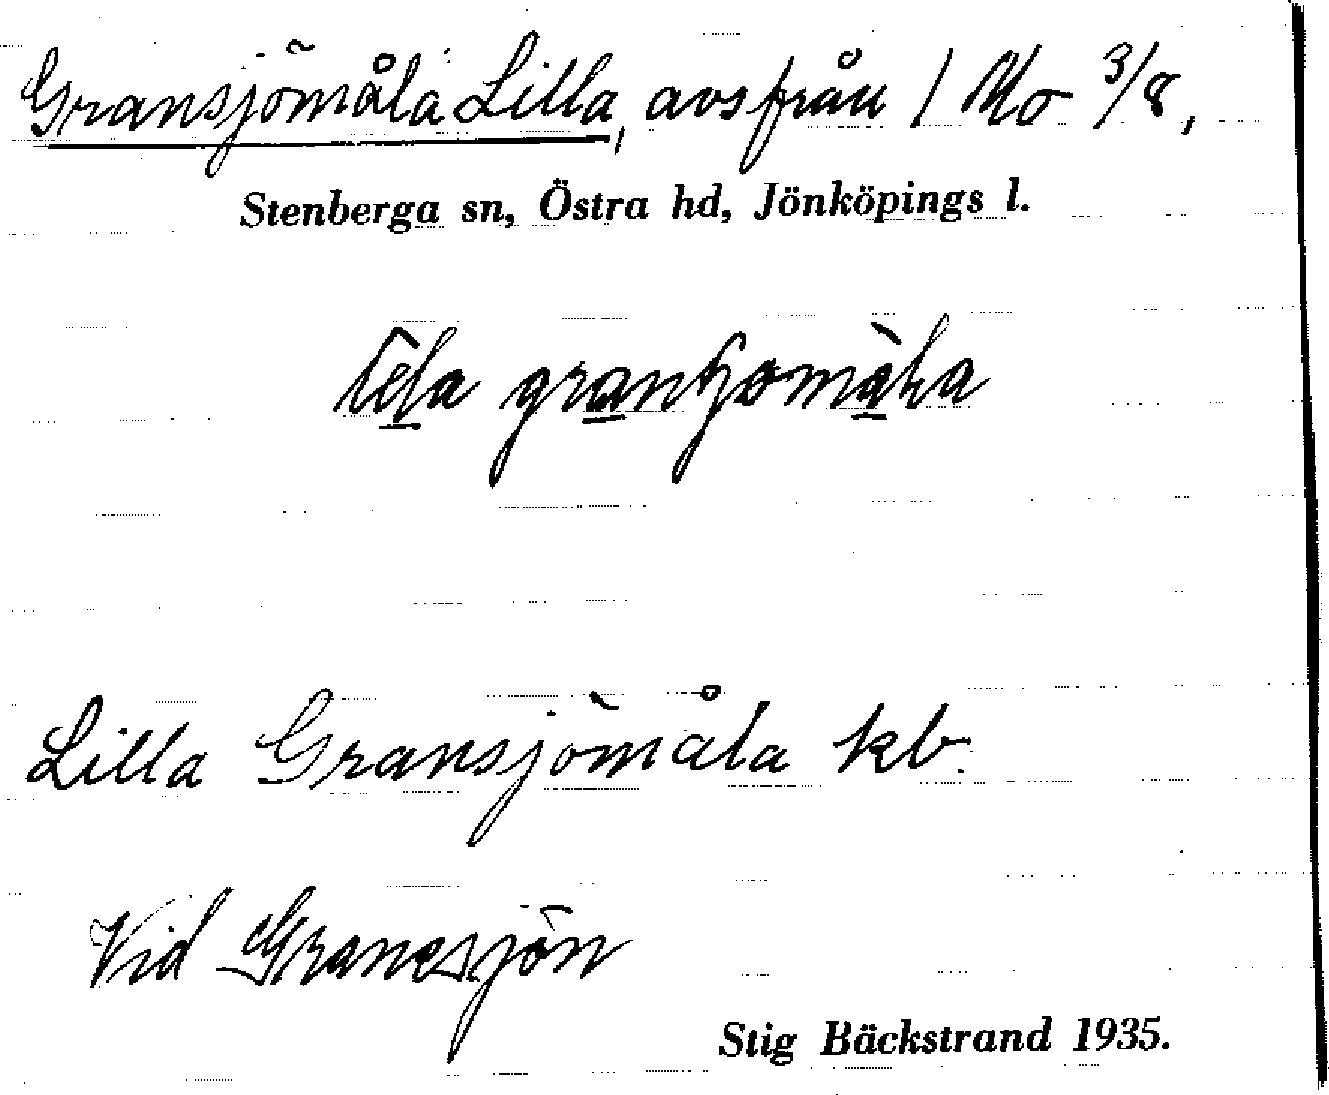 Gransjömåla Lilla, avs från 1 Mo 3/8,
Stenberga sn, Östra hd, Jönköpings l.
Lilla Gransjömåla kb.
Vid Granesjön
Stig Bäckstrand 1935.